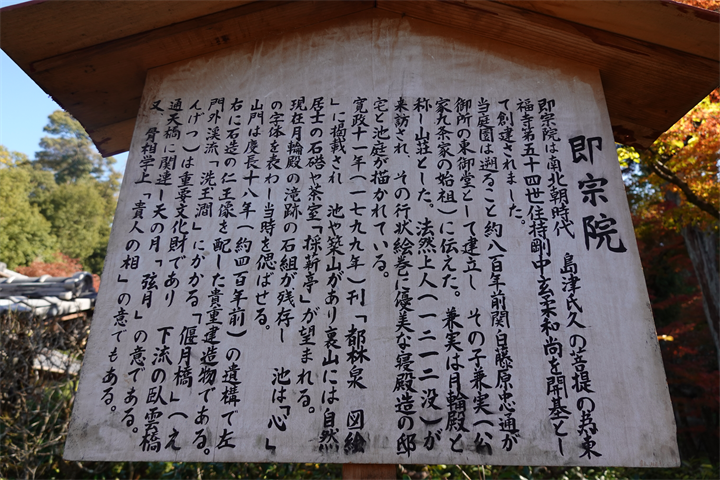 即宗院
即宗院は南北朝時代 島津氏久の菩提の為東
福寺第五十四世住持剛中玄柔和尚を開基とし
て創建されました。
当庭園は遡ること約八百年前関白藤原忠通が
御所の東御堂として建立し その子兼実(公
家九条家の始祖)に伝えた。兼実は月輪殿と
称し山荘とした。法然上人(一二一二没)が
来訪され、その行状絵巻に優美な寝殿造の邸
宅と池庭が描かれている。
寛政十一年(一七九九年)刊「都林泉 図絵
」に掲載され 池や築山があり裏山には自然
居士の石碚や茶室「採薪亭」が望まれる。
現在月輪殿の滝跡の石組が残存し 池は「心」
の字体を表わし当時を偲ばせる。
山門は慶長十八年(約四百年前)の遺構で左
右に石造の仁王像を配した貴重建造物である。
門外渓流「洗玉澗」にかかる「偃月橋」(え
んげつ)は重要文化財であり 下流の臥雲橋
通天橋に関連し天の月「弦月」の意である。
又、骨相学上「貴人の相」の意でもある。